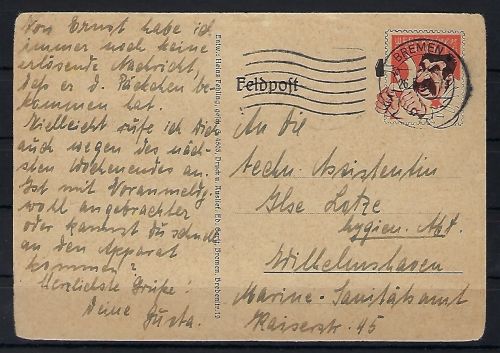 Von Ernst habe ich
immer noch keine
erlösende Nachricht,
daß er d. Päckchen be-
kommen hat.
Vielleicht rufe ich Dich
auch wegen des näch-
sten Wochenendes an.
Ist mit Voranmeldg
wohl angebrachter
oder kannst Du schnell
an den Apparat
kommen?
Herzlichste Grüße!
Deine
Gusta.
Entw. Heinz Fehling, gen.
Druck u. Auslief. Ed. Bremen,
BREMEN
Feldpost
An die
techn. Assistentin
Ilse Lotze
hygien. Abt.
Wilhelmshaven
Marine-Sanitätsamt
Kaiserstr. 45